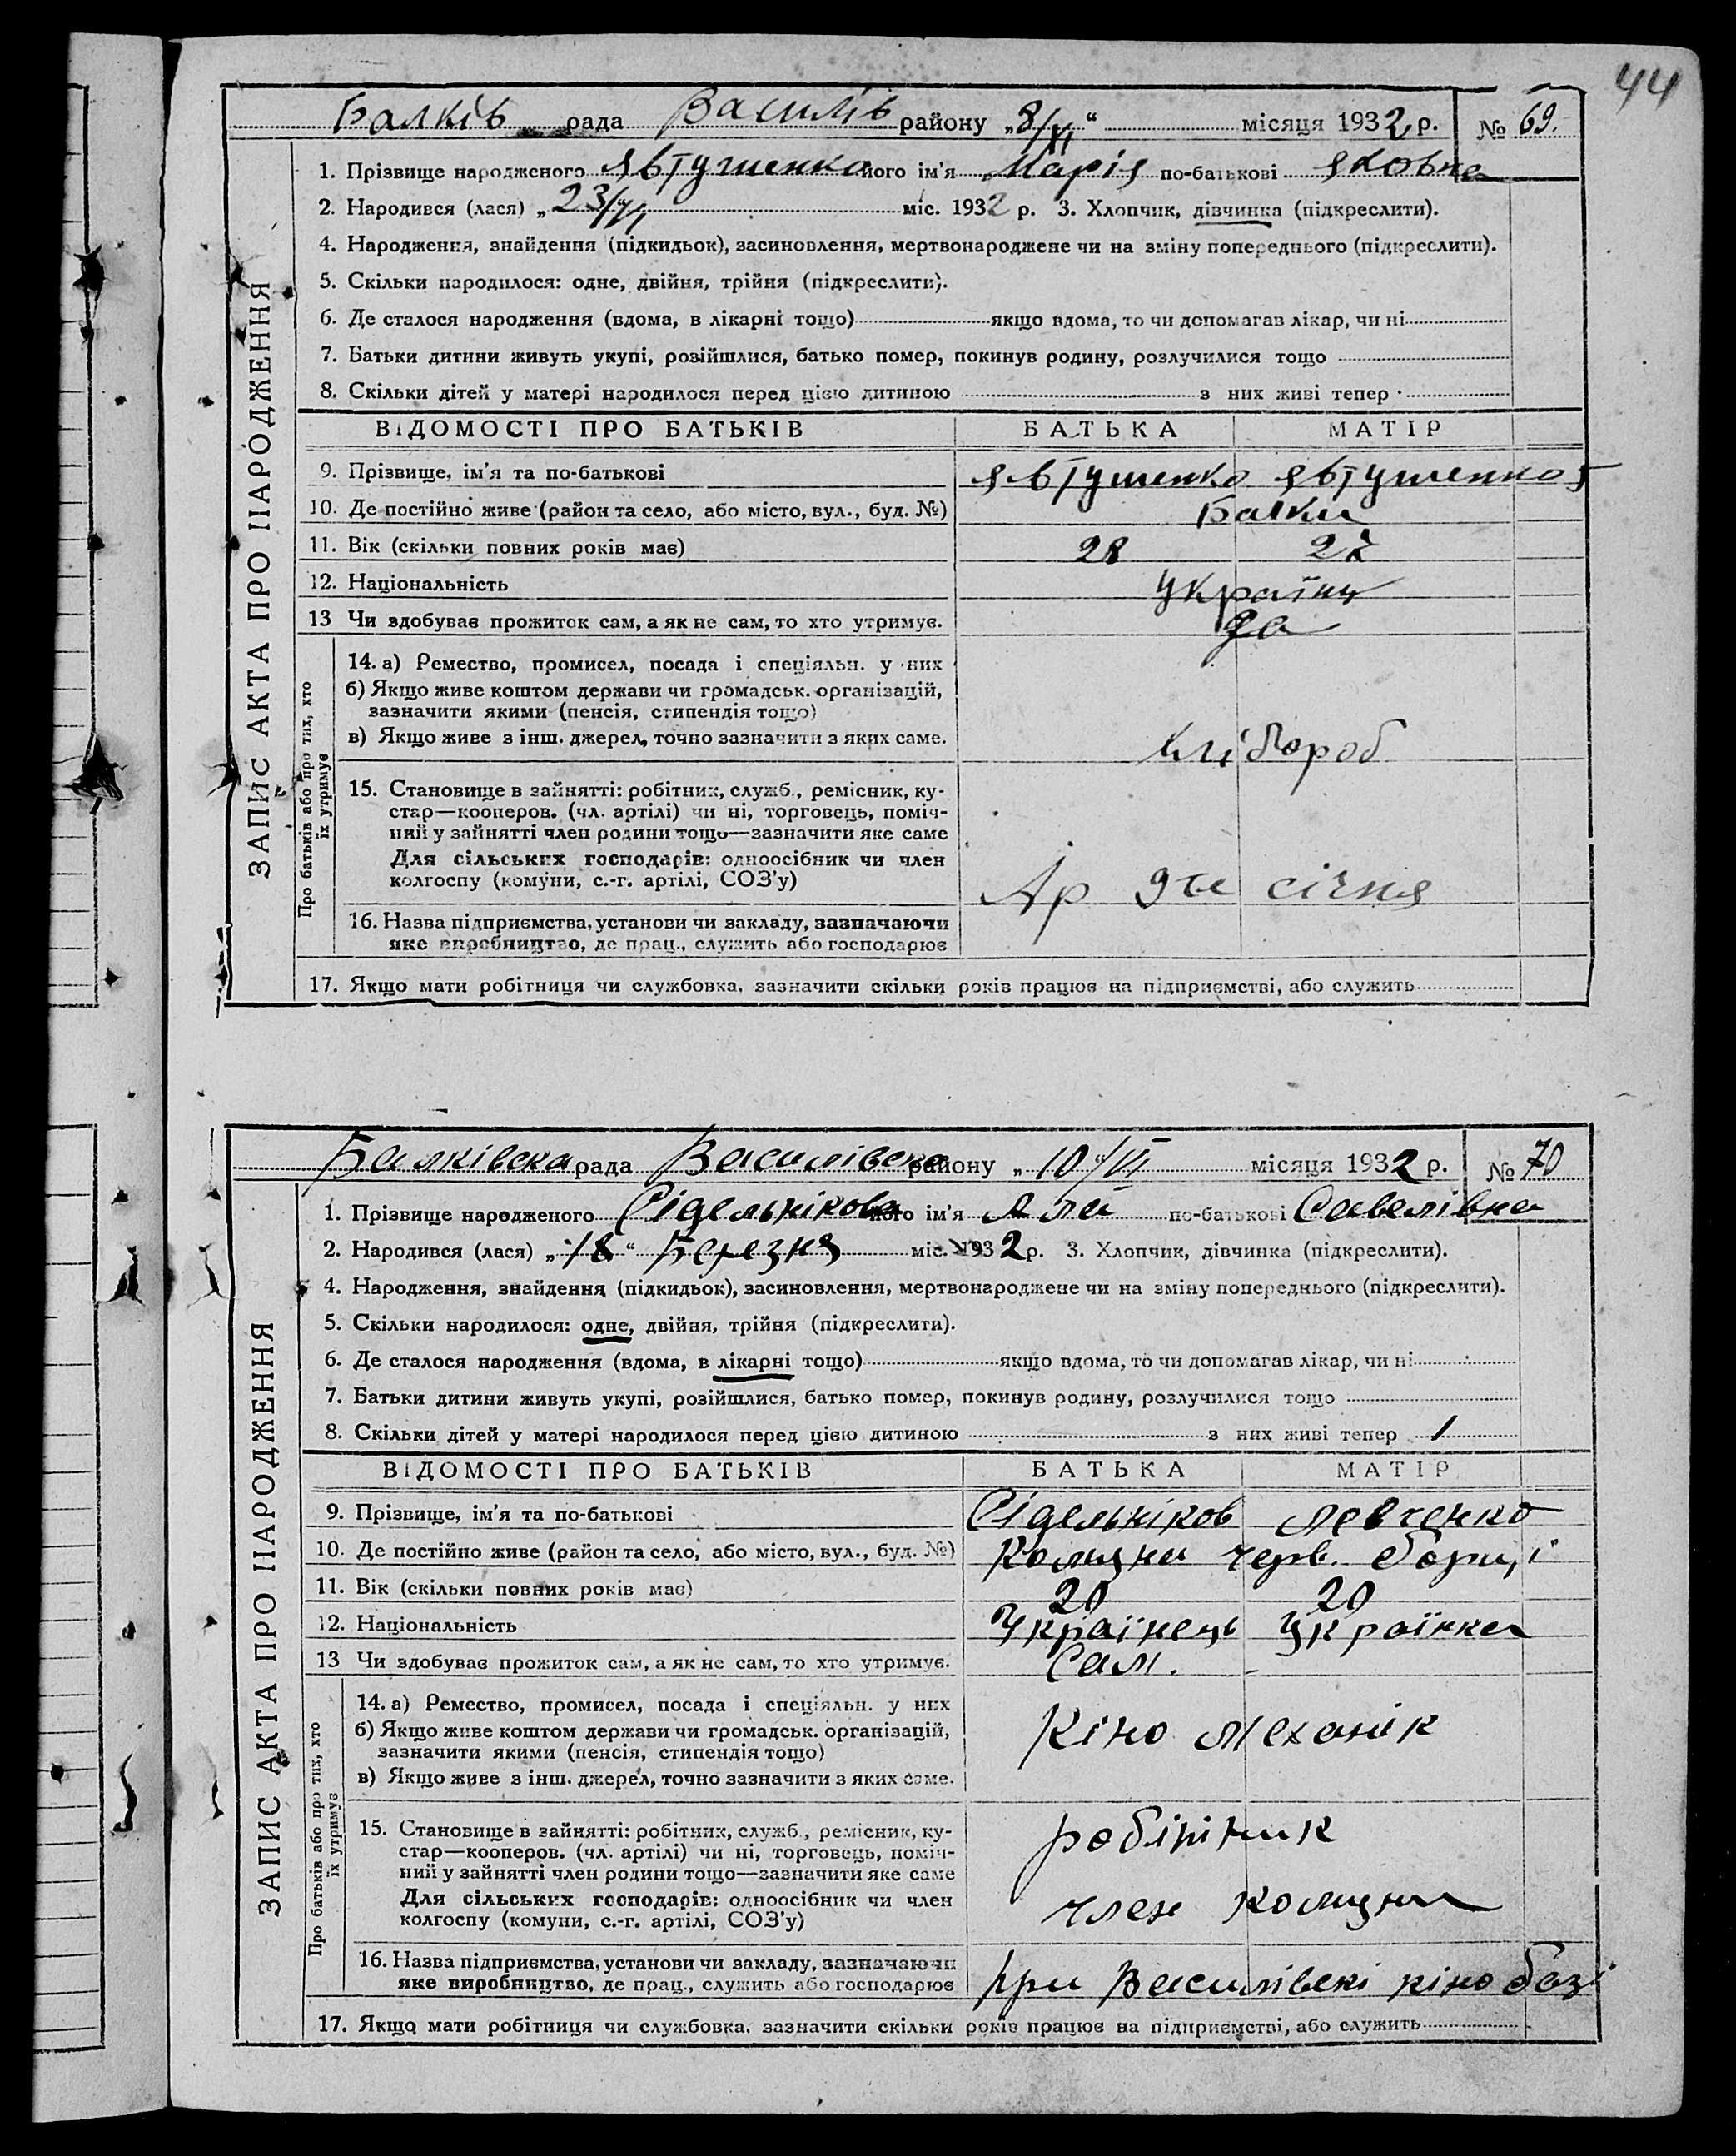 44
Балків рада Василів району „8/VI“ місяця 1932 р. № 69.
ЗАПИС АКТА ПРО НАРОДЖЕННЯ
1. Прізвище народженого Явтушенко його ім'я Марія по-батькові Яковна
2. Народився (лася) „23/VI міс. 1932 р. 3. Хлопчик, дівчинка (підкреслити).
4. Народження, знайдення (підкидьок), засиновлення, мертвонароджене чи на зміну попереднього (підкреслити).
5. Скільки народилося: одне, двійня, трійня (підкреслити).
6. Де сталося народження (вдома, в лікарні тощо) якщо вдома, то чи допомагав лікар, чи ні
7. Батьки дитини живуть укупі, розійшлися, батько помер, покинув родину, розлучилися тощо
8. Скільки дітей у матері народилося перед цією дитиною з них живі тепер
ВІДОМОСТІ ПРО БАТЬКІВ БАТЬКА МАТІР
9. Прізвище, ім'я та по-батькові Явтушенко Явтушенко
10. Де постійно живе (район та село, або місто, вул., буд. №) Балки
11. Вік (скільки повних років має) 28 27
12. Національність Українц
13 Чи здобував прожиток сам, а як не сам, то хто утримує. Да
Про батьків або про тих, хто їх утримує
14. а) Ремество, промисел, посада і спеціяльн. у них
б) Якщо живе коштом держави чи громадськ. організацій,
зазначити якими (пенсія, стипендія тощо)
в) Якщо живе з інш. джерел, точно зазначити з яких саме. хлібороб
15. Становище в зайнятті: робітник, служб., ремісник, ку-
стар—кооперов. (чл. артілі) чи ні, торговець, поміч-
ний у зайнятті член родини тощо—зазначити яке саме
Для сільських господарів: одноосібник чи член
колгоспу (комуни, с.-г. артілі, СОЗ'у) Ар 9те січня
16. Назва підприємства, установи чи закладу, зазначаючи
яке виробництво, де прац., служить або господарює
17. Якщо мати робітниця чи службовка, зазначити скільки років працює на підприємстві, або служить
Балківска рада Василівска району „10“/VI місяця 1932 р. № 70
ЗАПИС АКТА ПРО НАРОДЖЕННЯ
1. Прізвище народженого Сідельнікова його ім'я по-батькові Савелівна
2. Народився (лася) „18“ Березня міс. 1932 р. 3. Хлопчик, дівчинка (підкреслити).
4. Народження, знайдення (підкидьок), засиновлення, мертвонароджене чи на зміну попереднього (підкреслити).
5. Скільки народилося: одне, двійня, трійня (підкреслити).
6. Де сталося народження (вдома, в лікарні тощо) якщо вдома, то чи допомагав лікар, чи ні
7. Батьки дитини живуть укупі, розійшлися, батько помер, покинув родину, розлучилися тощо
8. Скільки дітей у матері народилося перед цією дитиною з них живі тепер 1
ВІДОМОСТІ ПРО БАТЬКІВ БАТЬКА МАТІР
9. Прізвище, ім'я та по-батькові Сідельніков Левченко
10. Де постійно живе (район та село, або місто, вул., буд. №) Комуна черв. борці
11. Вік (скільки повних років має) 20 20
12. Національність Українець Українка
13 Чи здобував прожиток сам, а як не сам, то хто утримує. Сам.
Про батьків або про тих, хто їх утримує
14. а) Ремество, промисел, посада і спеціяльн. у них Кіно механік
б) Якщо живе коштом держави чи громадськ. організацій,
зазначити якими (пенсія, стипендія тощо)
в) Якщо живе з інш. джерел, точно зазначити з яких саме.
15. Становище в зайнятті: робітник, служб., ремісник, ку- робітник
стар—кооперов. (чл. артілі) чи ні, торговець, поміч-
ний у зайнятті член родини тощо—зазначити яке саме
Для сільських господарів: одноосібник чи член член комуни
колгоспу (комуни, с.-г. артілі, СОЗ'у)
16. Назва підприємства, установи чи закладу, зазначаючи
яке виробництво, де прац., служить або господарює при Василівскі кіно базі
17. Якщо мати робітниця чи службовка, зазначити скільки років працює на підприємстві, або служить